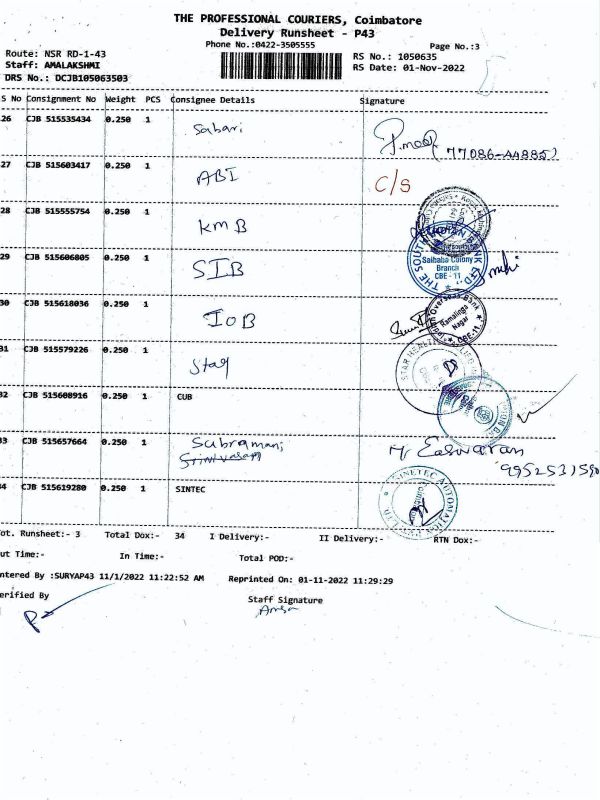 THE PROFESSIONAL COURIERS, Coimbatore
Delivery Runsheet - P43
Phone No.:0422-3505555
Page No.:3
Route: NSR RD-1-43
RS No.: 1050635
Staff: AMALAKSHMI
RS Date: 01-Nov-2022
DRS No.: DCJB105063503
S No Consignment No Weight PCS Consignee Details Signature
26 CJB 515535434 0.250 1 Sabari
27 CJB 515603417 0.250 1 ABI C/S
28 CJB 515555754 0.250 1 KMB
29 CJB 515606805 0.250 1 SIB
THE SOUTH INDIAN BANK LTD
Saibaba Colony
Branch
CBE - 11
30 CJB 515618036 0.250 1 IOB
Indian Overseas Bank
Ramalinga
Nagar
CBE-11
31 CJB 515579226 0.250 1 Star
STAR HEALTH
32 CJB 515608916 0.250 1 CUB
33 CJB 515657664 0.250 1 Subramani
Srinivasan
Easwaran
34 CJB 515619280 0.250 1 SINTEC
SINETEC AUTOMATION
ot. Runsheet:- 3 Total Dox:- 34 I Delivery:- II Delivery:- RTN Dox:-
ut Time:- In Time:- Total POD:-
ntered By :SURYAP43 11/1/2022 11:22:52 AM Reprinted On: 01-11-2022 11:29:29
erified By
Staff Signature